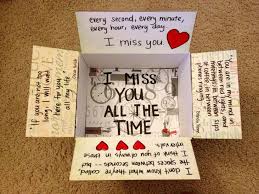 every second, every minute,
every hour, every day...
I miss you.
"If you are not too
long, I will wait
here for you
all my life"
Oscar Wilde
I MISS
YOU
ALL THE
TIME
You are in my mind
between
I don't know what they're called,
the spaces between seconds,
I think of you always in those
intervals.